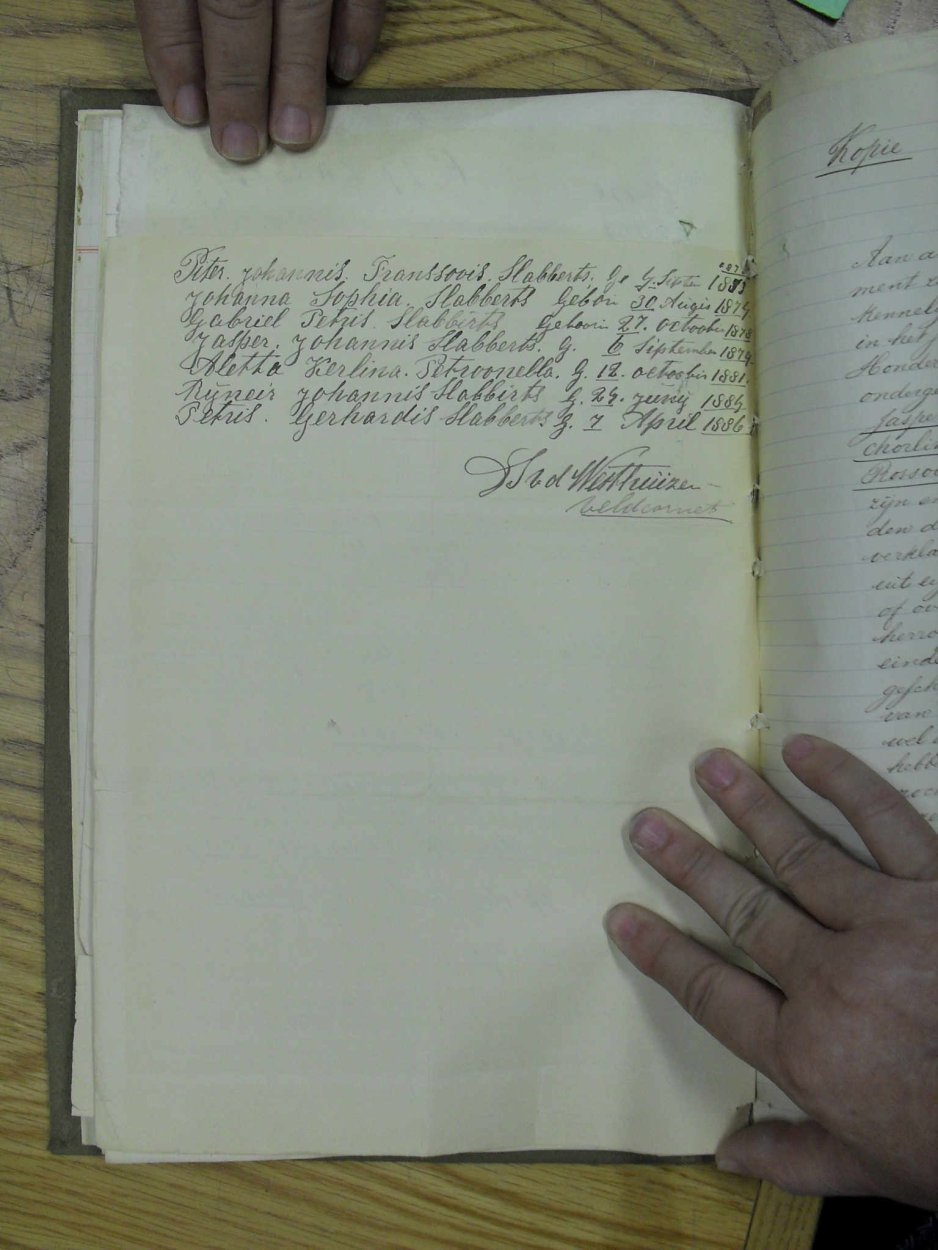 Peter. Johannis. Franssovis. Slabberts. G. 9. Septe 1883
Johanna Sophia. Slabberts Gebon 30 Augis 1874
Gabriel Petris. Slabbirts Geboren 27. octoober 1878
Jasper. Johannis Slabberts. G. 6 September 1879
Aletta Kerlina. Petroonella. G. 12. octoobir 1881.
Rÿneir Johannis Slabbirts G. 29. juenij 1884
Petris. Gerhardis Slabberts G. 7 April 1886
v d Westhuizen
Veldcornet
Kopie
Aan a
ment z
kennel
in het
Honder
onderge
Jasper
Chorlin
Rosso
zijn en
den d
verkla
uit ei
of ov
herro
einde
gesch
van
wel
hebbe